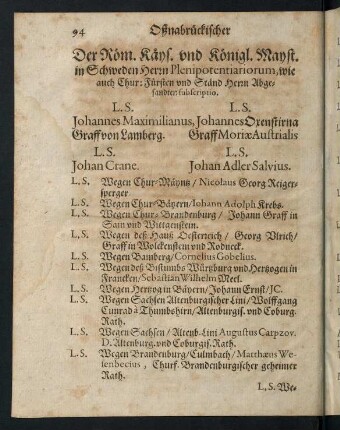 94 Oßnabrückischer
Der Röm. Käys. vnd Königl. Mayst.
in Schweden Herrn Plenipotentiariorum, wie
auch Chur: Fürsten vnd Ständ Herrn Abge-
sandten subscriptio.
L.S. L.S.
Johannes Maximilianus, Johannes Oxenstirna
Graff von Lamberg. Graff Moriæ Australis
L.S. L.S.
Johan Crane. Johan Adler Salvius.
L.S. Wegen Chur-Mäyntz / Nicolaus Georg Reiger-
sperger
L.S. Wegen Chur-Bäyern/Iohann Adolph Krebs.
L.S. Wegen Chur-Brandenburg / Johann Graff in
Sain vnd Wittgenstein.
L.S. Wegen deß Hauß Oesterreich / Georg Vlrich/
Graff in Wolckenstein vnd Rodneck.
L.S. Wegen Bamberg/Cornelius Gobelius.
L.S. Wegen deß Bistumbs Würtzburg vnd Hertzogen in
Francken/Sebastian Wilhelm Meel.
L.S. Wegen Hertzog in Bäyern/Johann Ernst/JC.
L.S. Wegen Sachsen Altenburgischer Lini/Wolffgang
Cunrad à Thumbshirn/Altenburgis. vnd Coburg.
Rath.
L.S. Wegen Sachsen / Altenb-Lini Augustus Carpzov.
D. Altenburg. vnd Coburgis. Rath.
L.S. Wegen Brandenburg/Culmbach/ Matthæus We-
senbecius, Churf. Brandenburgischer geheimer
Rath.
L.S. We-